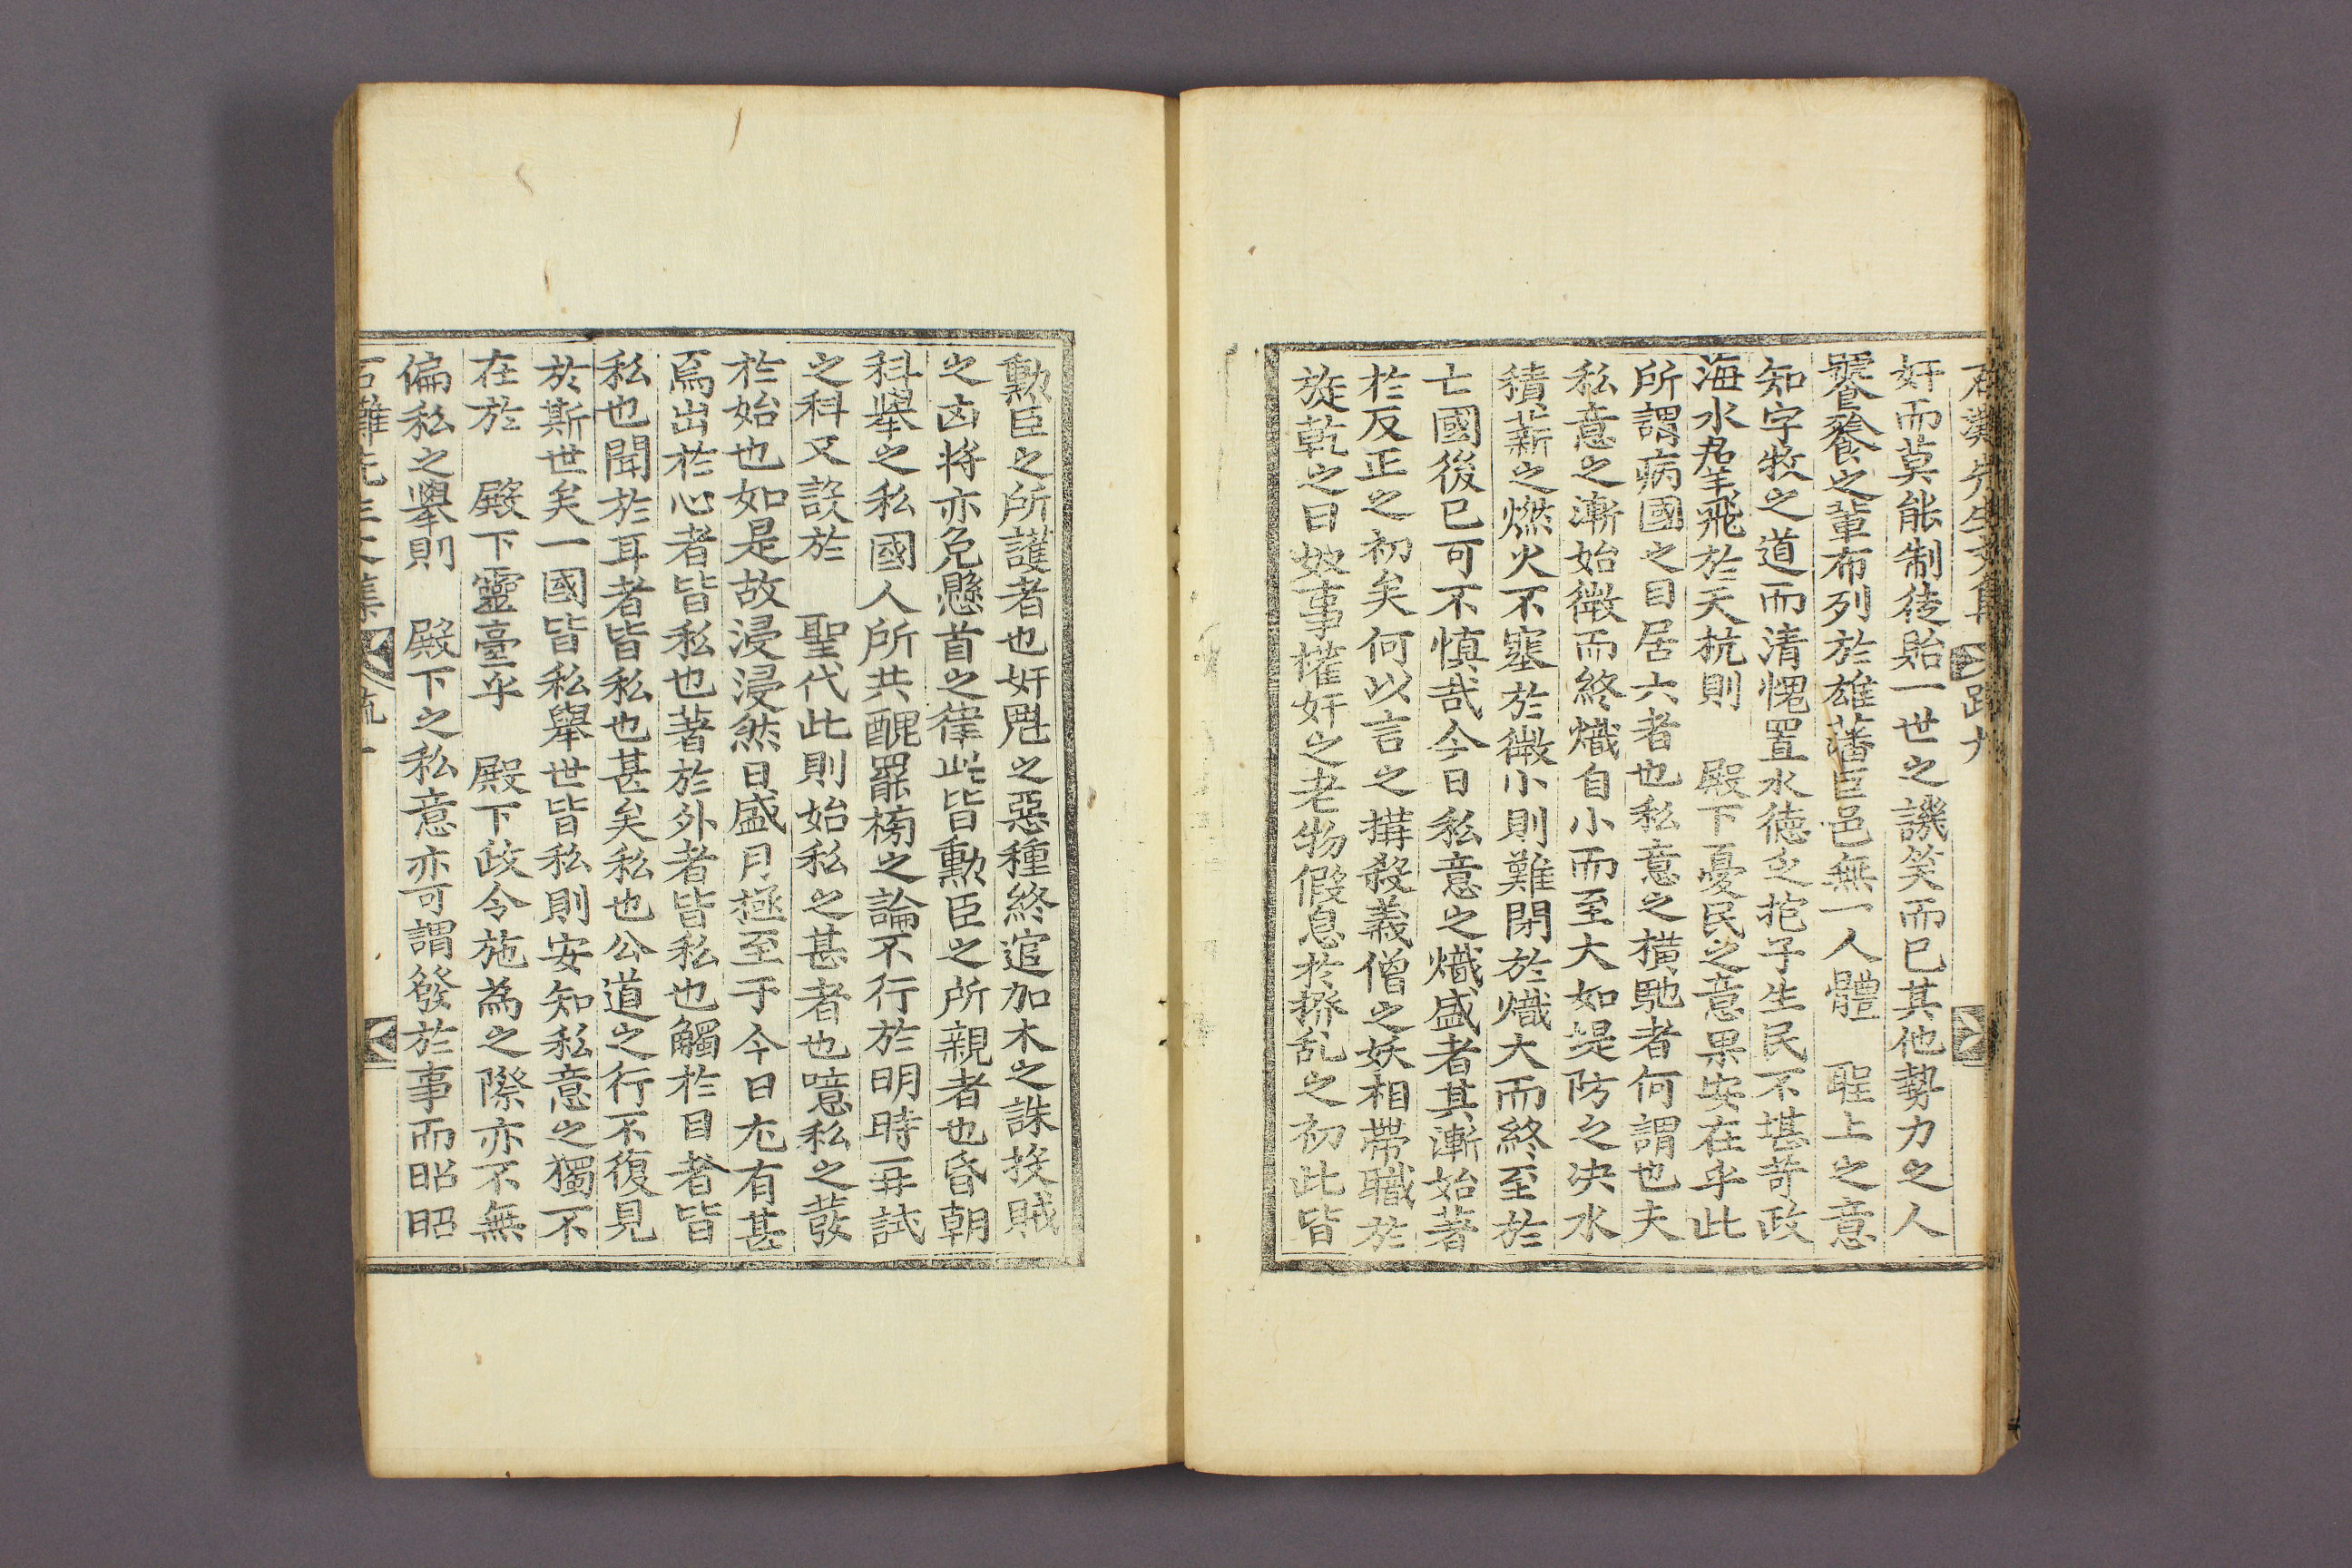 石灘先生文集
奸而莫能制徒貽一世之譏笑而已其他勢力之人
饕餮之輩布列於雄藩巨邑無一人體　聖上之意
知字牧之道而清愧置水德乏抱子生民不堪苛政
海水羣飛於天抗則　殿下憂民之意果安在乎此
所謂病國之目居六者也私意之橫馳者何謂也夫
私意之漸始微而終熾自小而至大如堤防之决水
積薪之燃火不塞於微小則難閉於熾大而終至於
亡國後已可不慎哉今日私意之熾盛者其漸始著
於反正之初矣何以言之搆殺義僧之妖相帶職於
旋乾之日奴事權奸之老物假息於撥乱之初此皆
勲臣之所護者也奸兇之惡種終逭加木之誅投賊
之凶將亦免懸首之律此皆勲臣之所親者也昏朝
科舉之私國人所共醜罷榜之論不行於明時再試
之科又設於　聖代此則始私之甚者也噫私之發
於始也如是故浸浸然日盛月極至于今日尤有甚
焉出於心者皆私也著於外者皆私也觸於目者皆
私也聞於耳者皆私也甚矣私也公道之行不復見
於斯世矣一國皆私舉世皆私則安知私意之獨不
在於　殿下靈臺乎　殿下政令施為之際亦不無
偏私之舉則　殿下之私意亦可謂發於事而昭昭
石灘先生文集